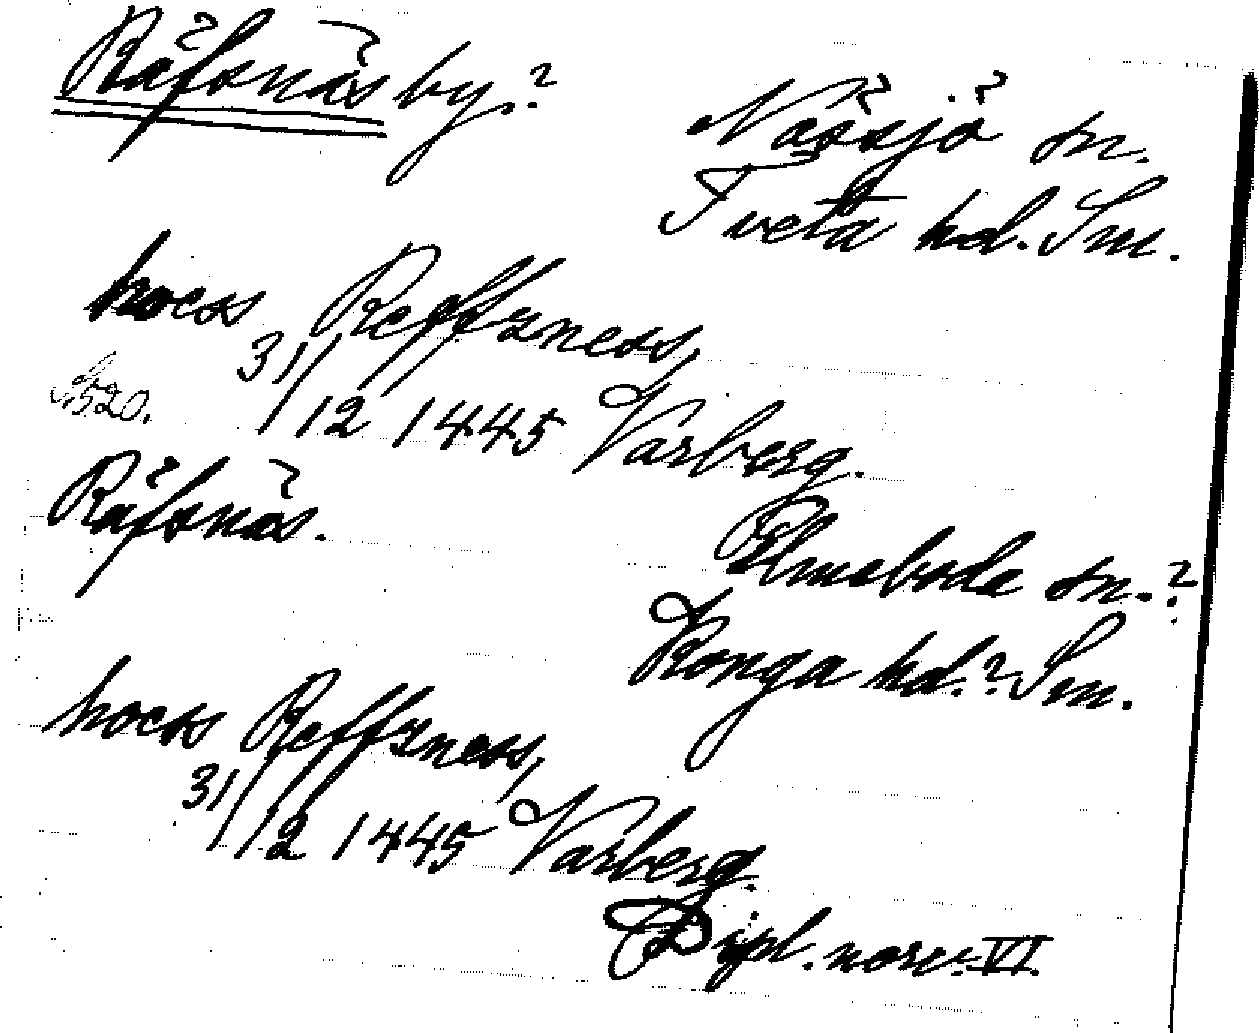 Räfsnäs by.?
Nässjö sn.
Tveta hd. Sm.
hoess Reffzness,
31/12 1445 Varberg.
S. 520.
Räfsnäs.
Elmeboda sn.?
Konga hd.? Sm.
hoess Reffzness,
31/12 1445 Varberg.
Dipl. norv. VI.